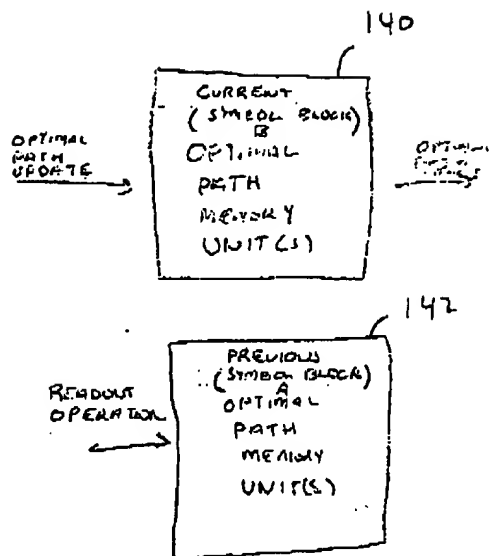 140
CURRENT
(SYMBOL BLOCK)
B
OPTIMAL
PATH
MEMORY
UNIT(S)
OPTIMAL
PATH
UPDATE
OPTIMAL
142
PREVIOUS
(SYMBOL BLOCK)
A
OPTIMAL
PATH
MEMORY
UNIT(S)
READOUT
OPERATION